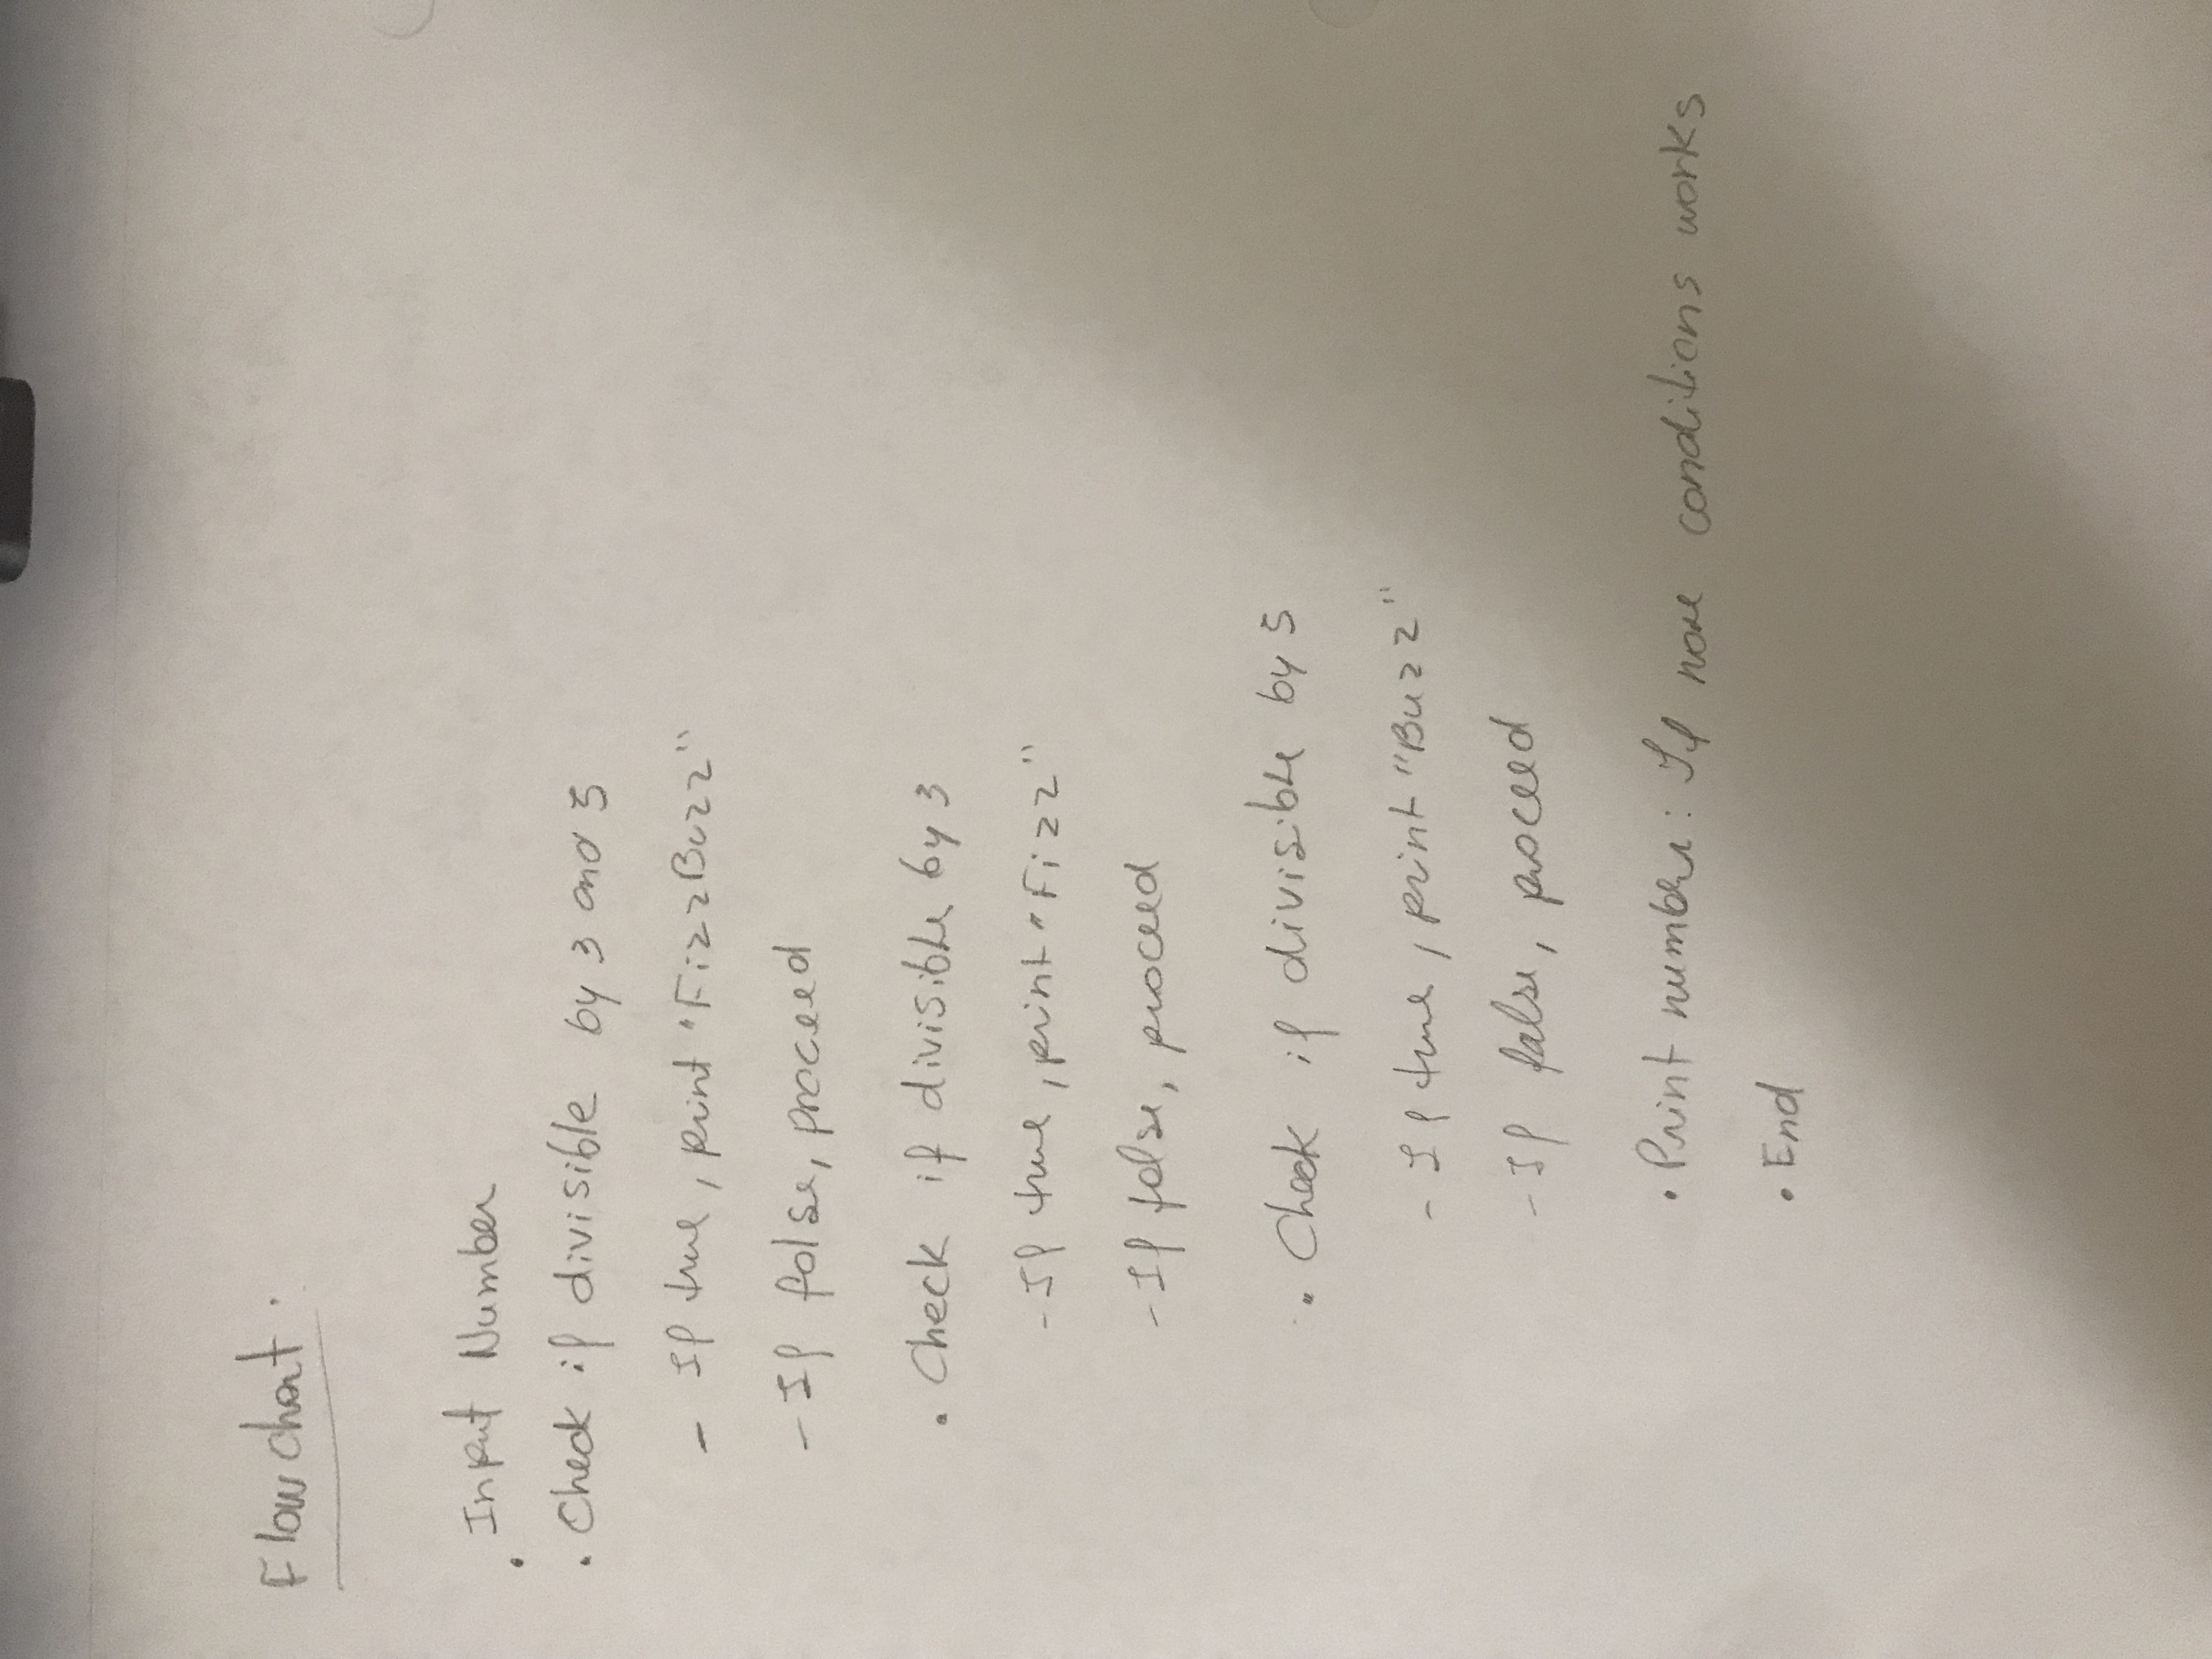 Flow chart.
. Input Number
. Check if divisible by 3 and 5
- If true, print "FizzBuzz"
- If false, proceed
. Check if divisible by 3
- If true, print "Fizz"
- If false, proceed
. Check if divisible by 5
- If true, print "Buzz"
- If false, proceed
. Print number: If none conditions works
. End